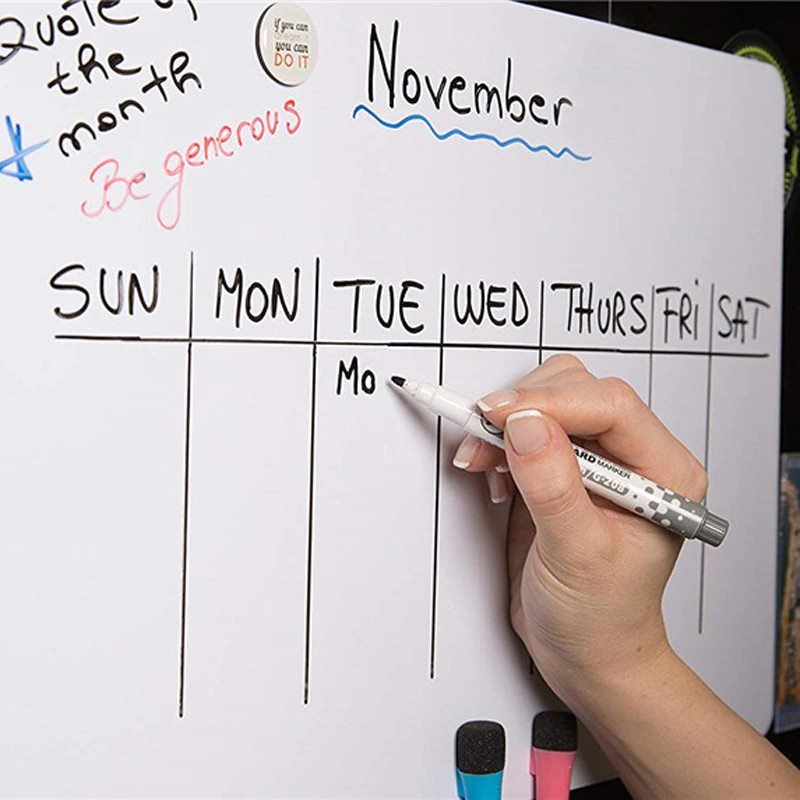 Quote of
the
month
Be generous
if you can
dream it
you can
DO IT
November
SUN MON TUE WED THURS FRI SAT
Mo
MARKER